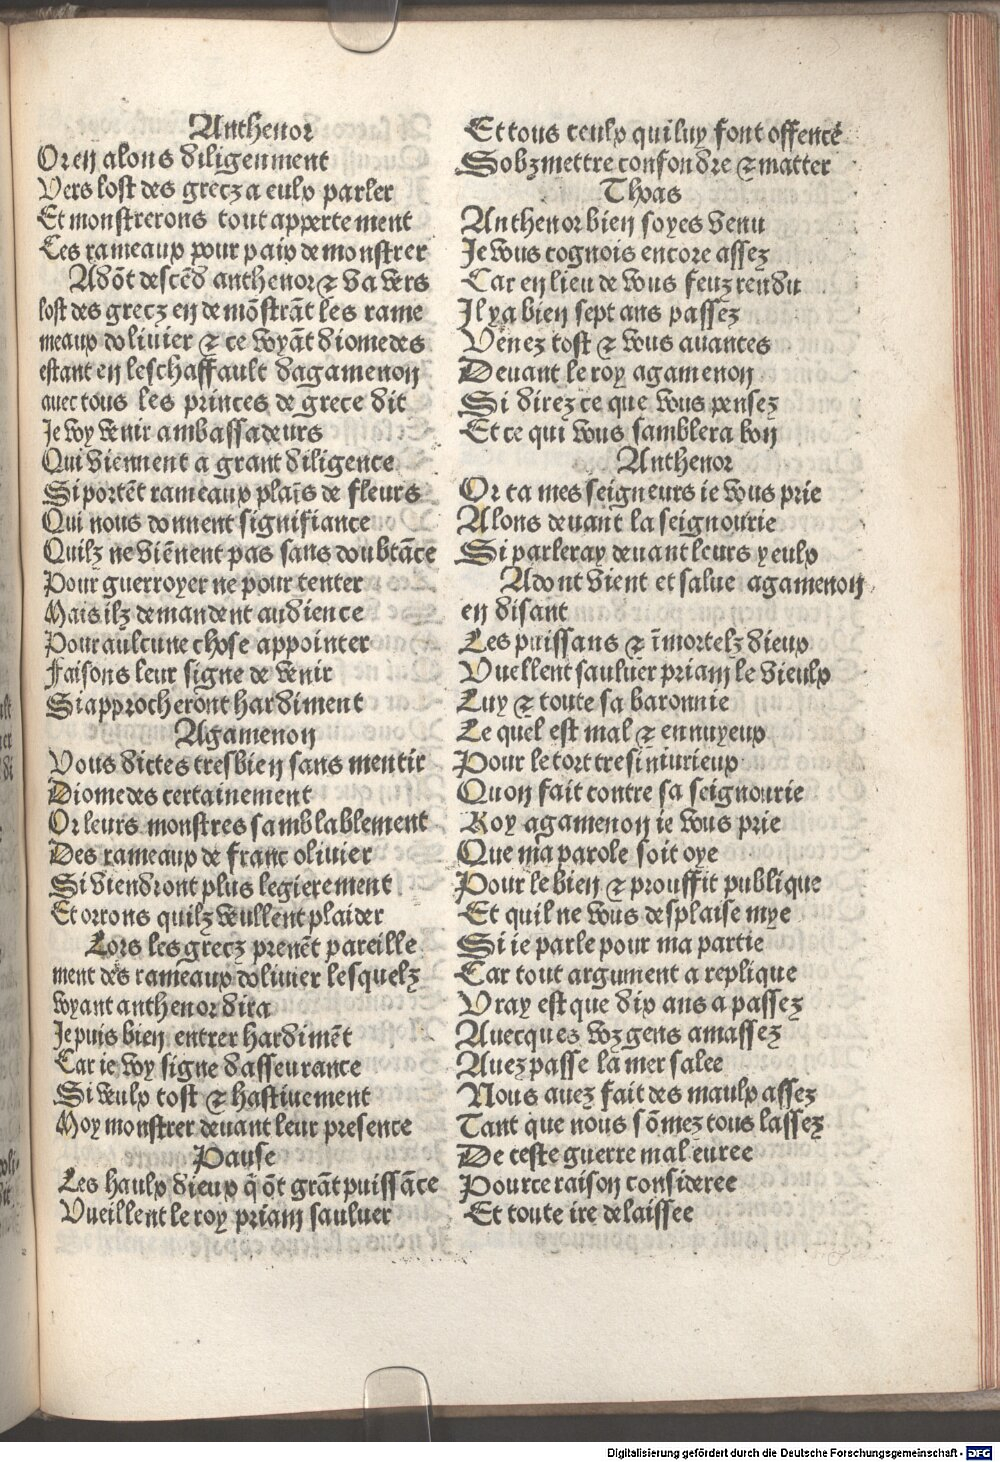 Anthenor
Or en alons diligenment
Vers lost des grecz a eulx parler
Et monstrerons tout appertement
Les rameaux pour paix demonstrer
Adōt descēd anthenor ⁊ va vers
lost des grecz en demōstrāt les rame
meaux doliuier ⁊ ce voyāt diomedes
estant en leschaffault dagamenon
auec tous les princes de grece dit
Je voy venir ambassadeurs
Qui viennent a grant diligence
Si portēt rameaux plaīs de fleurs
Qui nous donnent signifiance
Quilz ne viēnent pas sans doubtāce
Pour guerroyer ne pour tenter
Mais ilz demandent audience
Pour aulcune chose appointer
Faisons leur signe de venir
Si approcheront hardiment
Agamenon
Vous dictes tresbien sans mentir
Diomedes certainement
Or leurs monstres samblablement
Des rameaux de franc oliuier
Si viendront plus legierement
Et orrons quilz veullent plaider
Lors les grecz prenēt pareille
ment des rameaux doliuier lesquelz
voyant anthenor dira
Je puis bien entrer hardimēt
Car ie voy signe dasseurance
Si veulx tost ⁊ hastiuement
Moy monstrer deuant leur presence
Pause
Les haulx dieux q̄ ōt grāt puissāce
Vueillent le roy priam sauluer
Et tous ceulx qui luy font offence
Sobzmettre confondre ⁊ matter
Thoas
Anthenor bien soyes venu
Je vous cognois encore assez
Car en lieu de vous feuz rendu
Il ya bien sept ans passez
Venez tost ⁊ vous auances
Deuant le roy agamenon
Si direz ce que vous pensez
Et ce qui vous samblera bon
Anthenor
Or ca mes seigneurs ie vous prie
Alons deuant la seignourie
Si parleray deuant leurs yeulx
Adont vient et salue agamenon
en disant
Les puissans ⁊ īmortelz dieux
Vuellent sauluer priam le vieulx
Luy ⁊ toute sa baronnie
Le quel est mal ⁊ ennuyeux
Pour le tort tresiniurieux
Quon fait contre sa seignourie
Roy agamenon ie vous prie
Que ma parole soit oye
Pour le bien ⁊ prouffit publique
Et quil ne vous desplaise mye
Si ie parle pour ma partie
Car tout argument a replique
Vray est que dix ans a passez
Auecques voz gens amassez
Auez passe la mer salee
Nous auez fait des maulx assez
Tant que nous sōmez tous lassez
De ceste guerre mal euree
Pource raison consideree
Et toute ire delaissee
Digitalisierung gefördert durch die Deutsche Forschungsgemeinschaft - DFG